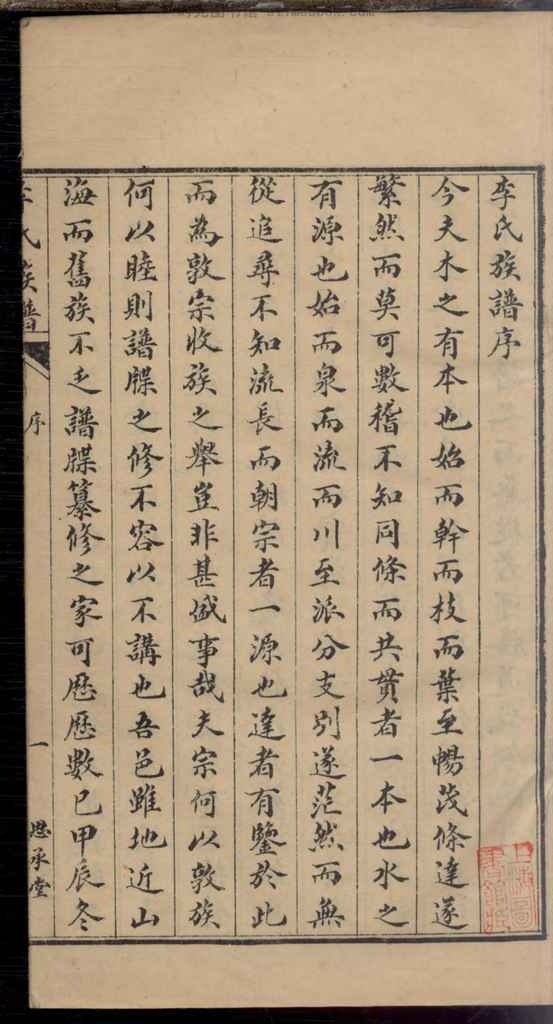 李氏族譜序
今夫木之有本也始而幹而枝而葉至暢茂條達遂
繁然而莫可數稽不知同條而共貫者一本也水之
有源也始而泉而流而川至派分支别遂茫然而無
從追尋不知流長而朝宗者一源也達者有鑒於此
而為敦宗收族之舉豈非甚盛事哉夫宗何以敦族
何以睦則譜牒之修不容以不講也吾邑雖地近山
海而舊族不乏譜牒纂修之家可歷歷數已甲辰冬
李氏族譜
序
一
思承堂
上海圖書館藏